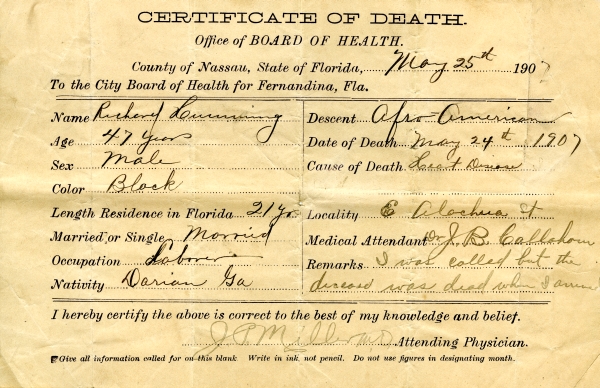 CERTIFICATE OF DEATH.
Office of BOARD OF HEALTH.
County of Nassau, State of Florida, May 25th 1907
To the City Board of Health for Fernandina, Fla.
Name Richard Cumming
Age 47 years
Sex Male
Color Black
Length Residence in Florida 21 yrs
Married or Single Married
Occupation Laborer
Nativity Darian Ga
Descent Afro-American
Date of Death May 24th 1907
Cause of Death Heart Disease
Locality E Alachua St
Medical Attendant Dr J. B. Callahan
Remarks I was called but the
diseased was dead when I
I hereby certify the above is correct to the best of my knowledge and belief.
Attending Physician.
Give all information called for on this blank Write in ink, not pencil. Do not use figures in designating month.